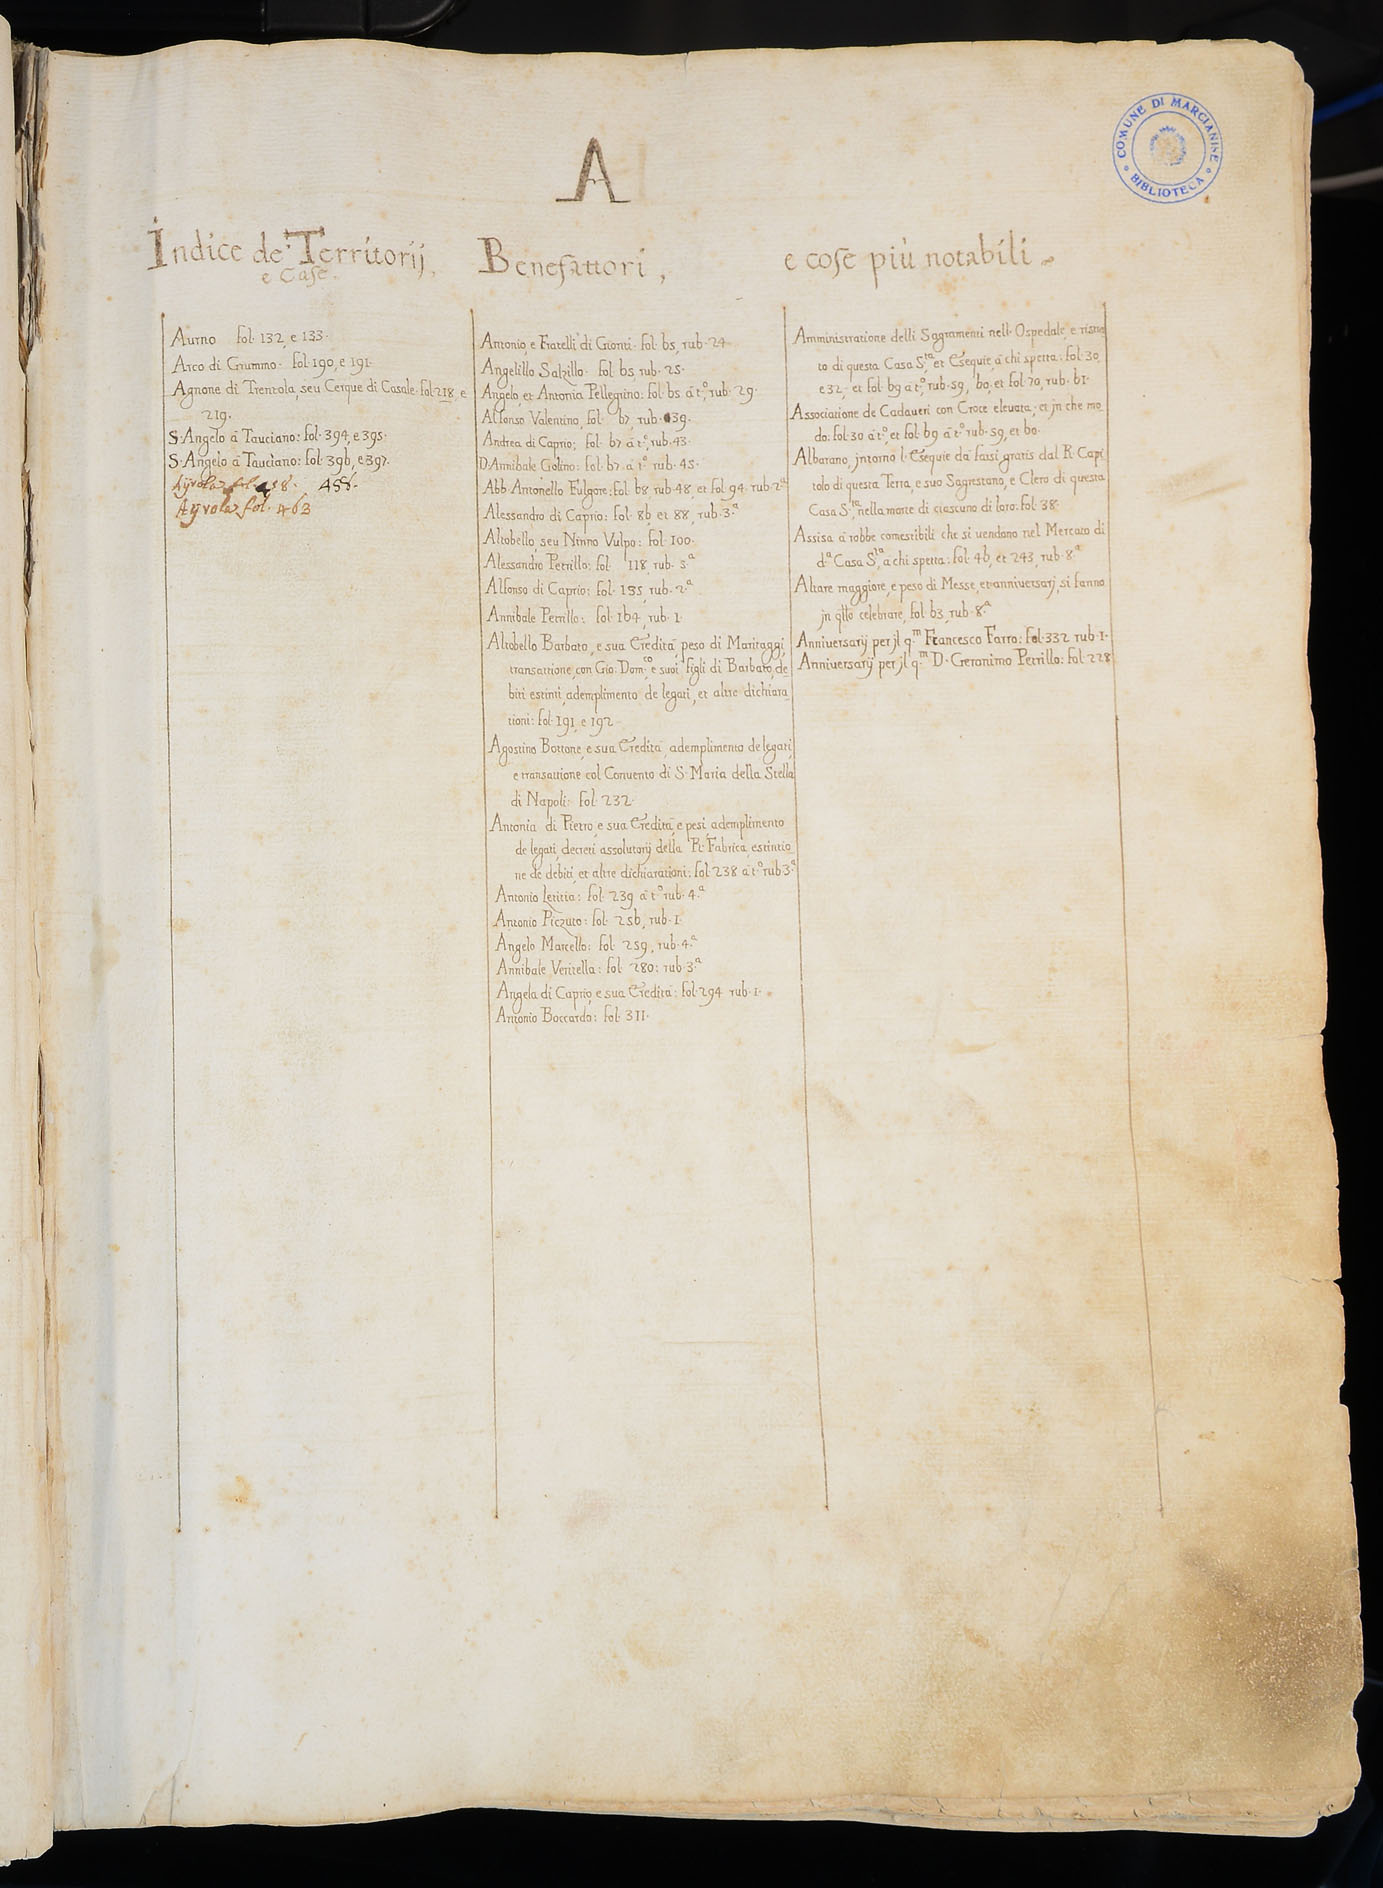 COMUNE DI MARCIANISE
BIBLIOTECA
A
Indice de' Territorij,
e Case.
Aurno fol. 132, e 133.
Arco di Grummo: fol. 190, e 191.
Agnone di Trentola, seu Cerque di Casale. fol. 218, e
219.
S. Angelo à Tauciano: fol. 394, e 395.
S. Angelo à Tauciano: fol. 396, e 397.
Ayrola fol. 458. 458.
Ayrola fol. 463
Benefattori,
Antonio, e Fratelli di Gionti. fol. 65, rub. 24
Angelillo Salzillo. fol. 65, rub. 25.
Angelo, et Antonia Pellegrino: fol. 65 à t.º, rub. 29.
Alfonso Valentino, fol. 67, rub. 39.
Andrea di Caprio; fol. 67 à t.º, rub. 43.
D. Annibale Golino: fol. 67. à t.º rub. 45.
Abb. Antonello Fulgore: fol. 68 rub. 48, et fol. 94. rub. 2ª
Alessandro di Caprio: fol. 86, et 88, rub. 3.ª
Altobello, seu Ninno Vulpo: fol. 100.
Alessandro Petrillo: fol. 118, rub. 5.ª
Alfonso di Caprio: fol. 155, rub. 2.ª
Annibale Perrillo: fol. 164, rub. 1.
Altobello Barbato, e sua Eredità, peso di Maritaggi,
transattione, con Gio: Dom.co, e suoi figli di Barbato, de
biti estinti, adempimento de legati, et altre dichiara
tioni: fol. 191, e 192.
Agostino Bottone, e sua Eredità, adempimento de legati,
e transattione col Convento di S. Maria della Stella
di Napoli: fol. 232.
Antonia di Pietro, e sua Eredità, e pesi, adempimento
de legati, decreti assolutorij della R. Fabrica, estintio
ne de debiti, et altre dichiarationi: fol. 238 à t.º rub. 3.ª
Antonio Letitia: fol. 239 à t.º rub. 4.ª
Antonio Piczuto: fol. 256, rub. 1.
Angelo Marcello: fol. 259, rub. 4.ª
Annibale Veritella: fol. 280: rub. 3.ª
Angela di Caprio, e sua Eredità: fol. 294 rub. 1.
Antonio Boccardo: fol. 311.
e cose più notabili.
Amministratione delli Sagramenti nell' Ospedale, e
to di questa Casa S.ta, et Esequie, à chi spetta: fol. 30,
e 32, et fol. 69 à t.º, rub. 59, 60, et fol. 70, rub. 61.
Associatione de Cadaveri con Croce elevata, et in che mo
do: fol. 30 à t.º, et fol. 69 à t.º rub. 59, et 60.
Albarano, jntorno l' Esequie da farsi gratis dal R. Capi
tolo di questa Terra, e suo Sagrestano, e Clero di questa
Casa S.ta nella morte di ciascuno di loro: fol. 38.
Assisa à robbe comestibili che si uendono nel Mercato di
d.ª Casa S.ta, à chi spetta: fol. 46, et 243, rub. 8.ª
Altare maggiore, e peso di Messe, et anniversarj, si fanno
jn q̃llo celebrare, fol. 63, rub. 8.ª
Anniversarij per jl q.m Francesco Farro: fol. 332 rub. 1.
Anniversarij per jl q.m D. Geronimo Petrillo: fol. 228